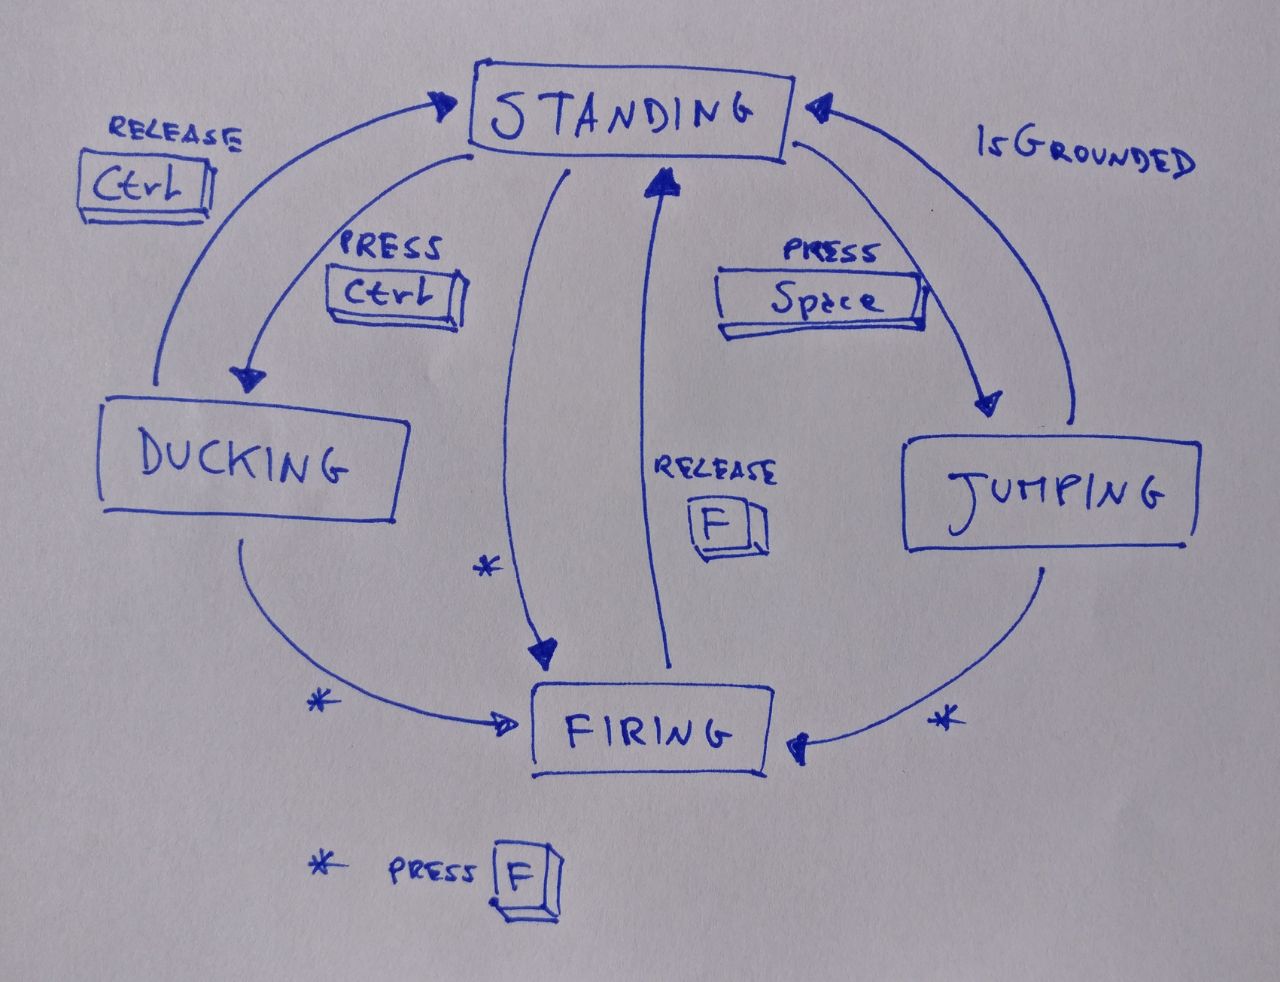 STANDING
RELEASE
Ctrl
IsGROUNDED
PRESS
Ctrl
PRESS
Space
DUCKING
RELEASE
F
JUMPING
*
*
*
FIRING
* PRESS F